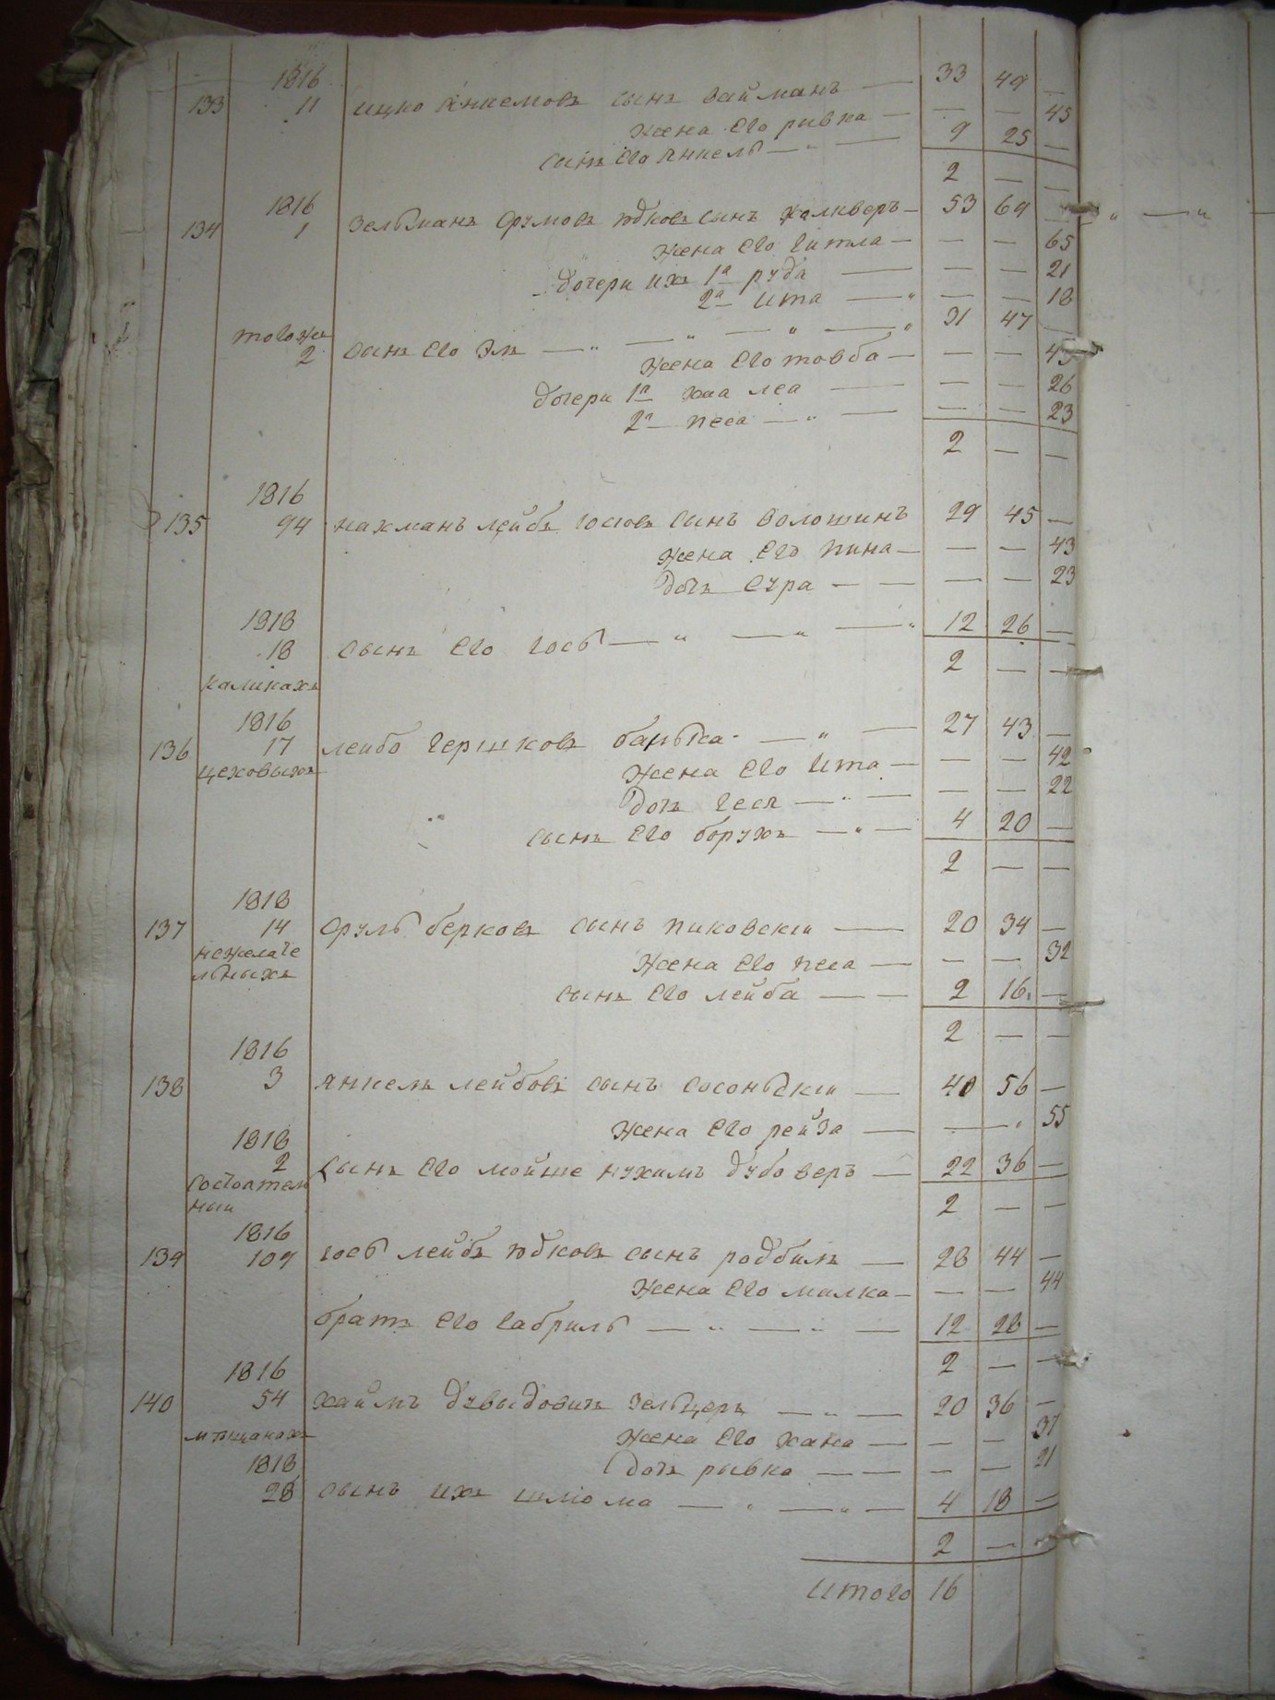 1816 33 49 —
133 11 ицко Янкелювъ сынъ вайманъ —
жена его ривка — — — 45
сынъ его Янкель — „ — 9 25 —
2 — —
1816
134 1 Зельманъ Срумовъ юдковъ сынъ халиверъ — 53 69 —
жена его гитла — — — 65
дочери ихъ 1я руда — — — 21
2я ита — „ — — 18
того же
2 сынъ его Эля — „ — „ — „ — „ 31 47 —
жена его товба — — — 45
дочери 1я хаа леа — — — 26
2я песа — „ — — — 23
2 — —
1816
135 94 нахманъ лейбъ госювъ сынъ волошинъ 29 45 —
жена его пина — — — 43
дочь сура — — — — 23
1818
18 сынъ его госъ — „ — „ — „ 12 26 —
каликах 2 — —
1816
136 17 лейбо гершковъ банька — „ — 27 43 —
цеховыхъ жена его ита — — — 42
дочь геся — „ — — — 22
сынъ его борухъ — „ — 4 20 —
2 — —
1818
137 14 Сруль берковъ сынъ пиковскiи — 20 34 —
нежелате
льныхъ жена его песа — — — 32
сынъ его лейба — — 2 16 —
2 — —
1816
138 3 Янкель лейбовъ сынъ сосоньскiи — 40 56 —
жена его рейза — — „ 55
1818
2 сынъ его мойше нухимъ дубоверъ — 22 36 —
состоятель
ныи 2 — —
1816
139 109 госъ лейбъ юдковъ сынъ радбиль — 28 44 —
жена его малка — — — 44
братъ его габриль — „ — „ — 12 28 —
2 — —
1816
140 54 хаймъ дувыдовичъ Зельцеръ — „ — 20 36 —
мѣщанохъ жена его хана — — — 37
1818 дочь ривка — — — — 21
28 сынъ ихъ шлiома — „ — „ — 4 18 —
2 — —
итого 16